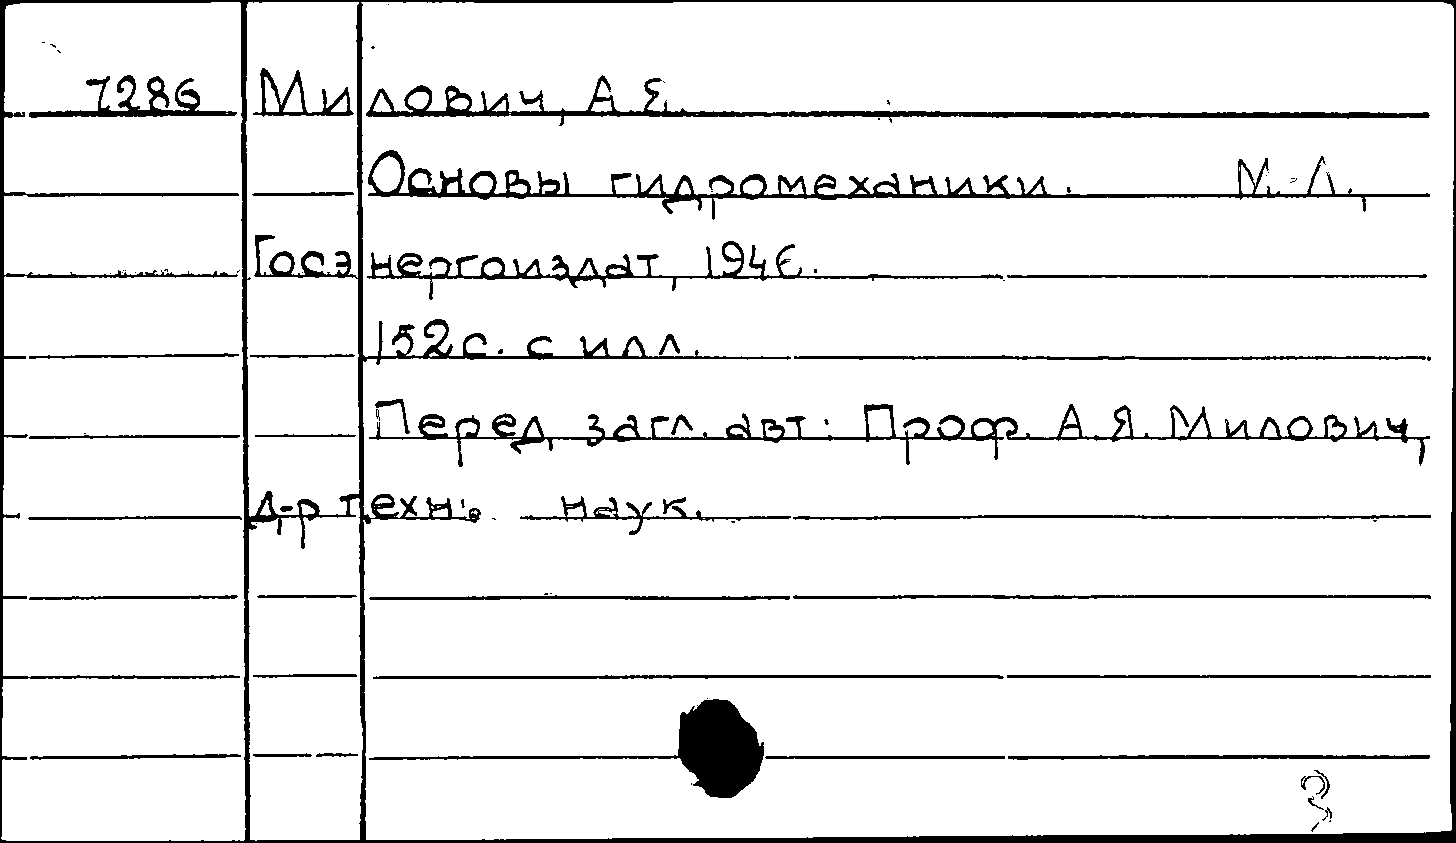 7286 Милович, А.Я.
Основы гидромеханики. М.-Л.,
Госэнергоиздат, 1946.
152с. с илл.
Перед загл. авт: Проф. А.Я. Милович,
д-р техн. наук.